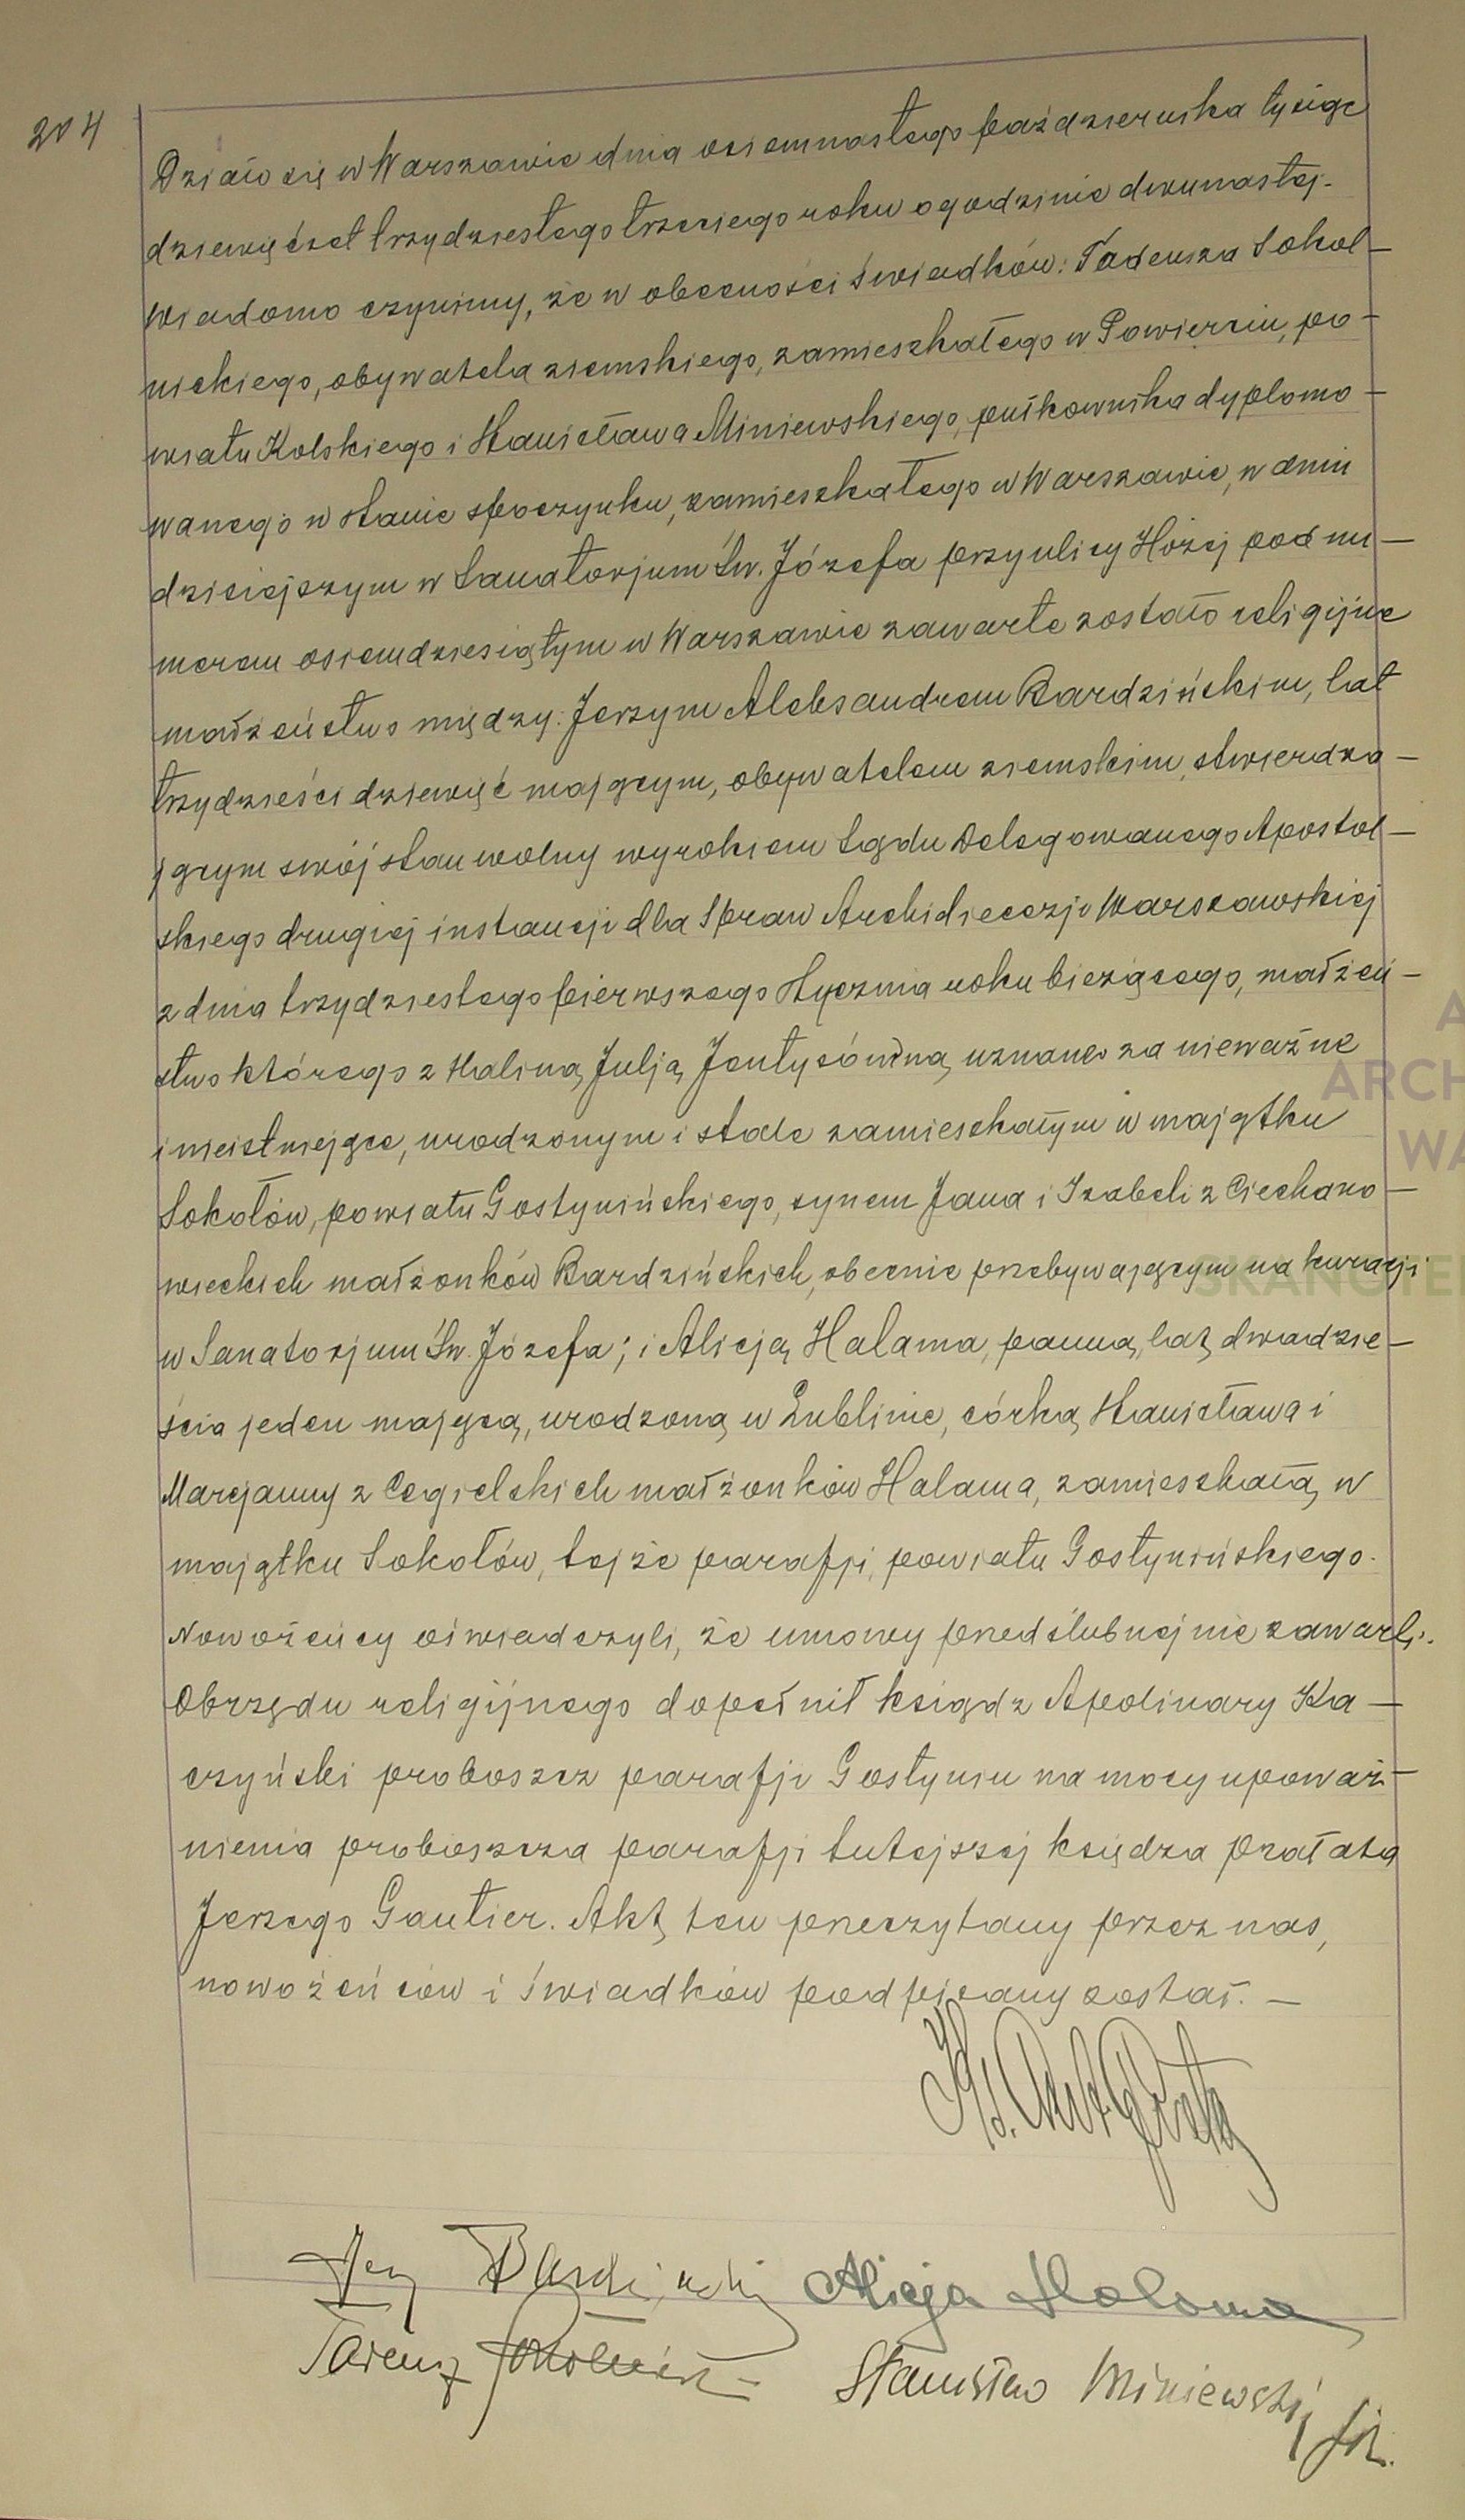 204
Działo się w Warszawie dnia osiemnastego października tysiąc
dziewięćset trzydziestego trzeciego roku o godzinie dwunastej.
Wiadomo czynimy, że w obecności świadków: Tadeusza Sokol-
nickiego, obywatela ziemskiego, zamieszkałego w Powierciu, po-
wiatu Kolskiego i Stanisława Miniewskiego, pułkownika dyplomo-
wanego w stanie spoczynku, zamieszkałego w Warszawie, w dniu
dzisiejszym w Sanatorjum Św. Józefa przy ulicy Hożej pod nu-
merem osiemdziesiątym w Warszawie zawarte zostało religijne
małżeństwo między: Jerzym Aleksandrem Bardzińskim, lat
trzydzieści dziewięć mającym, obywatelem ziemskim, stwierdza-
jącym swój stan wolny wyrokiem Sądu Delegowanego Apostol-
skiego drugiej instancji dla Spraw Archidiecezji Warszawskiej
z dnia trzydziestego pierwszego stycznia roku bieżącego, małżeń-
stwo którego z Haliną Julją Jentysówną uznano za nieważne
i nieistniejące, urodzonym i stale zamieszkałym w majątku
Sokołów, powiatu Gostynińskiego, synem Jana i Izabeli z Ciechano-
wieckich małżonków Bardzińskich, obecnie przebywającym na kuracji
w Sanatorjum Św. Józefa; i Alicją Halama, panną, lat dwadzie-
ścia jeden mającą, urodzoną w Lublinie, córką Stanisława i
Marcjanny z Cegielskich małżonków Halama, zamieszkałą w
majątku Sokołów, tejże parafji, powiatu Gostynińskiego.
Nowożeńcy oświadczyli, że umowy przedślubnej nie zawarli.
Obrzędu religijnego dopełnił ksiądz Apolinary Ka-
czyński proboszcz parafji Gostynin na mocy upoważ-
nienia proboszcza parafji tutejszej księdza Prałata
Jerzego Gautier. Akt ten przeczytany przez nas,
nowożeńców i świadków podpisany został. -
Ks.
Jerzy Bardziński Alicja Halama
Tadeusz Sokolnicki - Stanisław Miniewski
A
ARCH
WA
SKANOTE